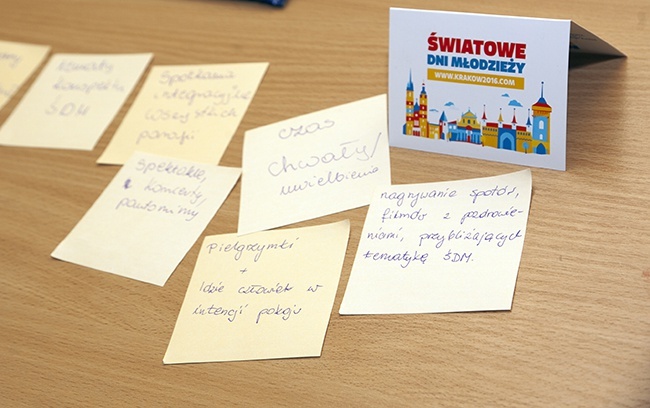 ŚWIATOWE
DNI MŁODZIEŻY
WWW.KRAKOW2016.COM
ŚDM
Spotkania
integracyjne
wszystkich
parafii
czas
chwały/
uwielbienia
spektakle,
koncerty,
pantomimy
nagrywanie spotów,
filmów z pozdrowie-
niami, przybliżających
tematykę ŚDM.
Pielgrzymki
+
Idzie człowiek w
intencji pokoju